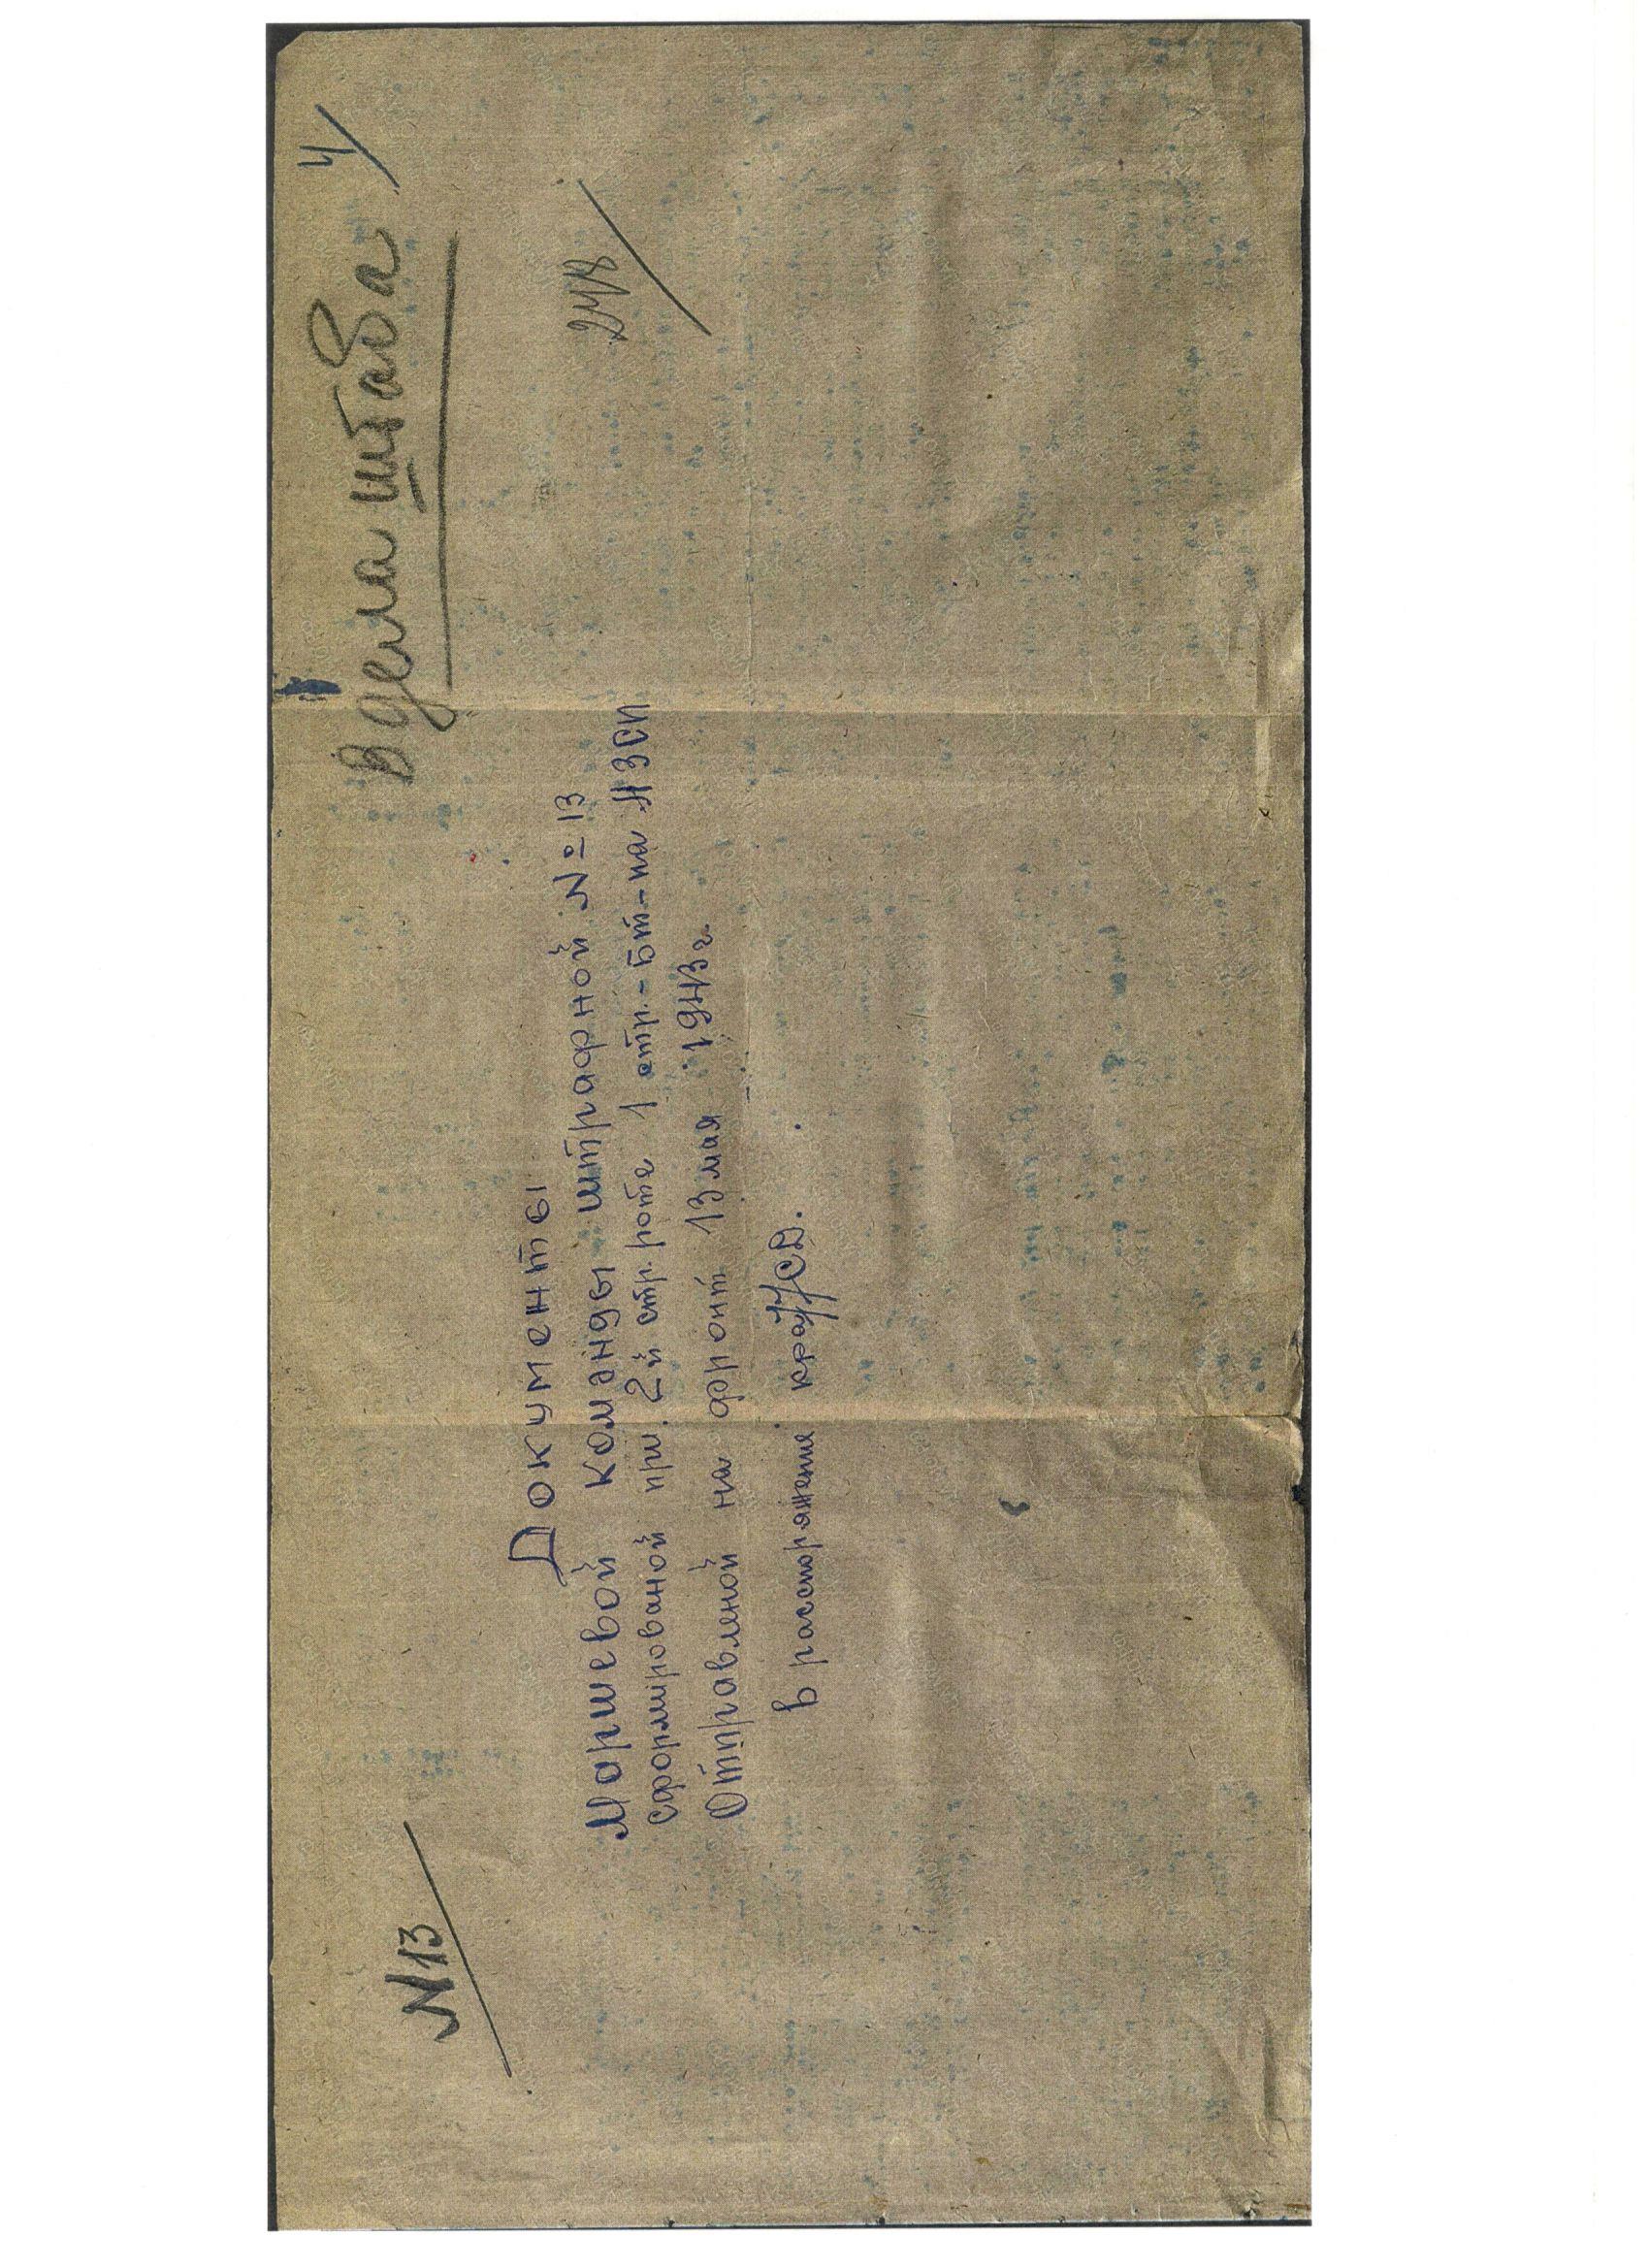 В дела штаба
4/
N13
248
Документы
Маршевой команды штрафной № 13
сформированой при 2й стр. роте 1 стр.-бт-на ЗСП
Отправленой на фронт 13 мая 1943 г.
в распоряжение СД.